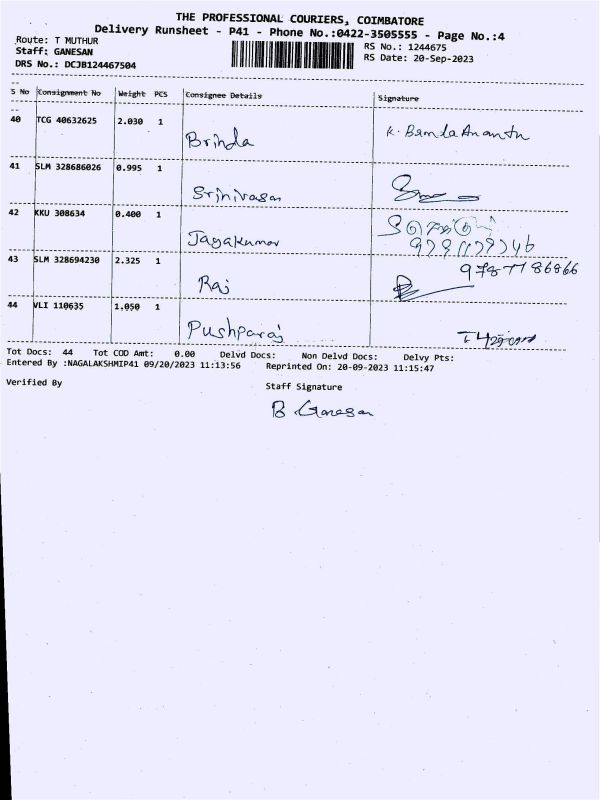 THE PROFESSIONAL COURIERS, COIMBATORE
Delivery Runsheet - P41 - Phone No.:0422-3505555 - Page No.:4
Route: T MUTHUR
RS No.: 1244675
Staff: GANESAN
RS Date: 20-Sep-2023
DRS No.: DCJB124467504
S No Consignment No Weight PCS Consignee Details Signature
40 TCG 40632625 2.030 1
Brinda
41 SLM 328686026 0.995 1
Srinivasan
42 KKU 308634 0.400 1
Jayakumar
43 SLM 328694230 2.325 1
9787786866
Raj
44 VLI 110635 1.050 1
Pushparaj
Tot Docs: 44 Tot COD Amt: 0.00 Delvd Docs: Non Delvd Docs: Delvy Pts:
Entered By :NAGALAKSHMIP41 09/20/2023 11:13:56 Reprinted On: 20-09-2023 11:15:47
Verified By Staff Signature
B Ganesan